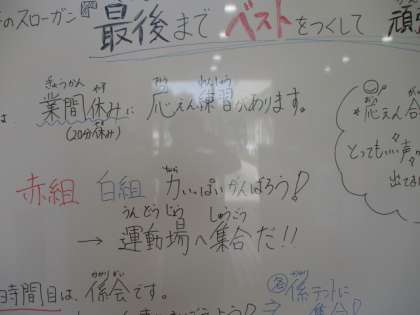 のスローガン 最後まで ベストをつくして 頑
は 業間休みに 応えん練習があります。
ぎょうかん やす おう れんしゅう
(20分休み)
応えん合
とってもいい声が
出てお
赤組 白組 力いっぱいがんばろう!
ちから
うんどうじょう しゅうごう
→ 運動場へ集合だ!!
時間目は、係会です。
かかりかい
係テントに